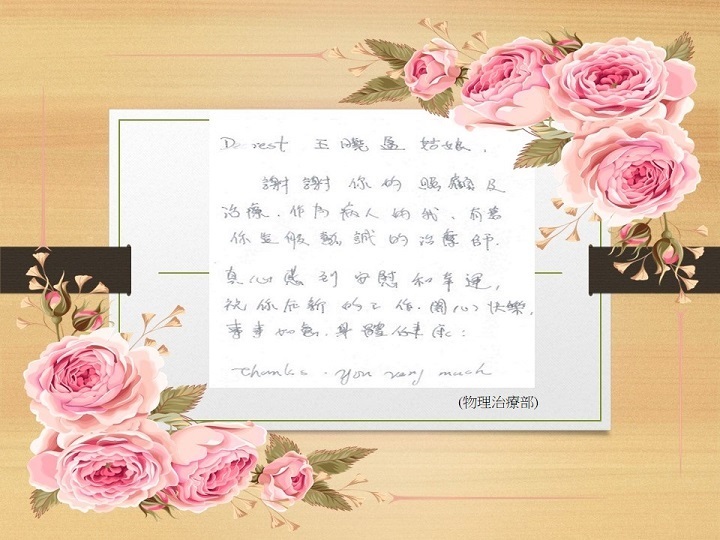 Dearest 王曉 姑娘.
謝謝你的照顧及
治療.作為病人的我.有著
你這般熱誠的治療師.
真心感到安慰和幸運,
祝你在新的工作.開心快樂,
事事如意.身體健康:
Thanks. you very much
(物理治療部)